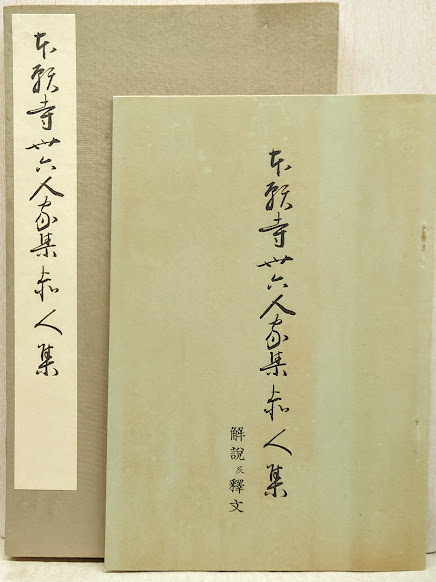 本願寺卅六人家集赤人集
解說及釋文
本願寺卅六人家集赤人集